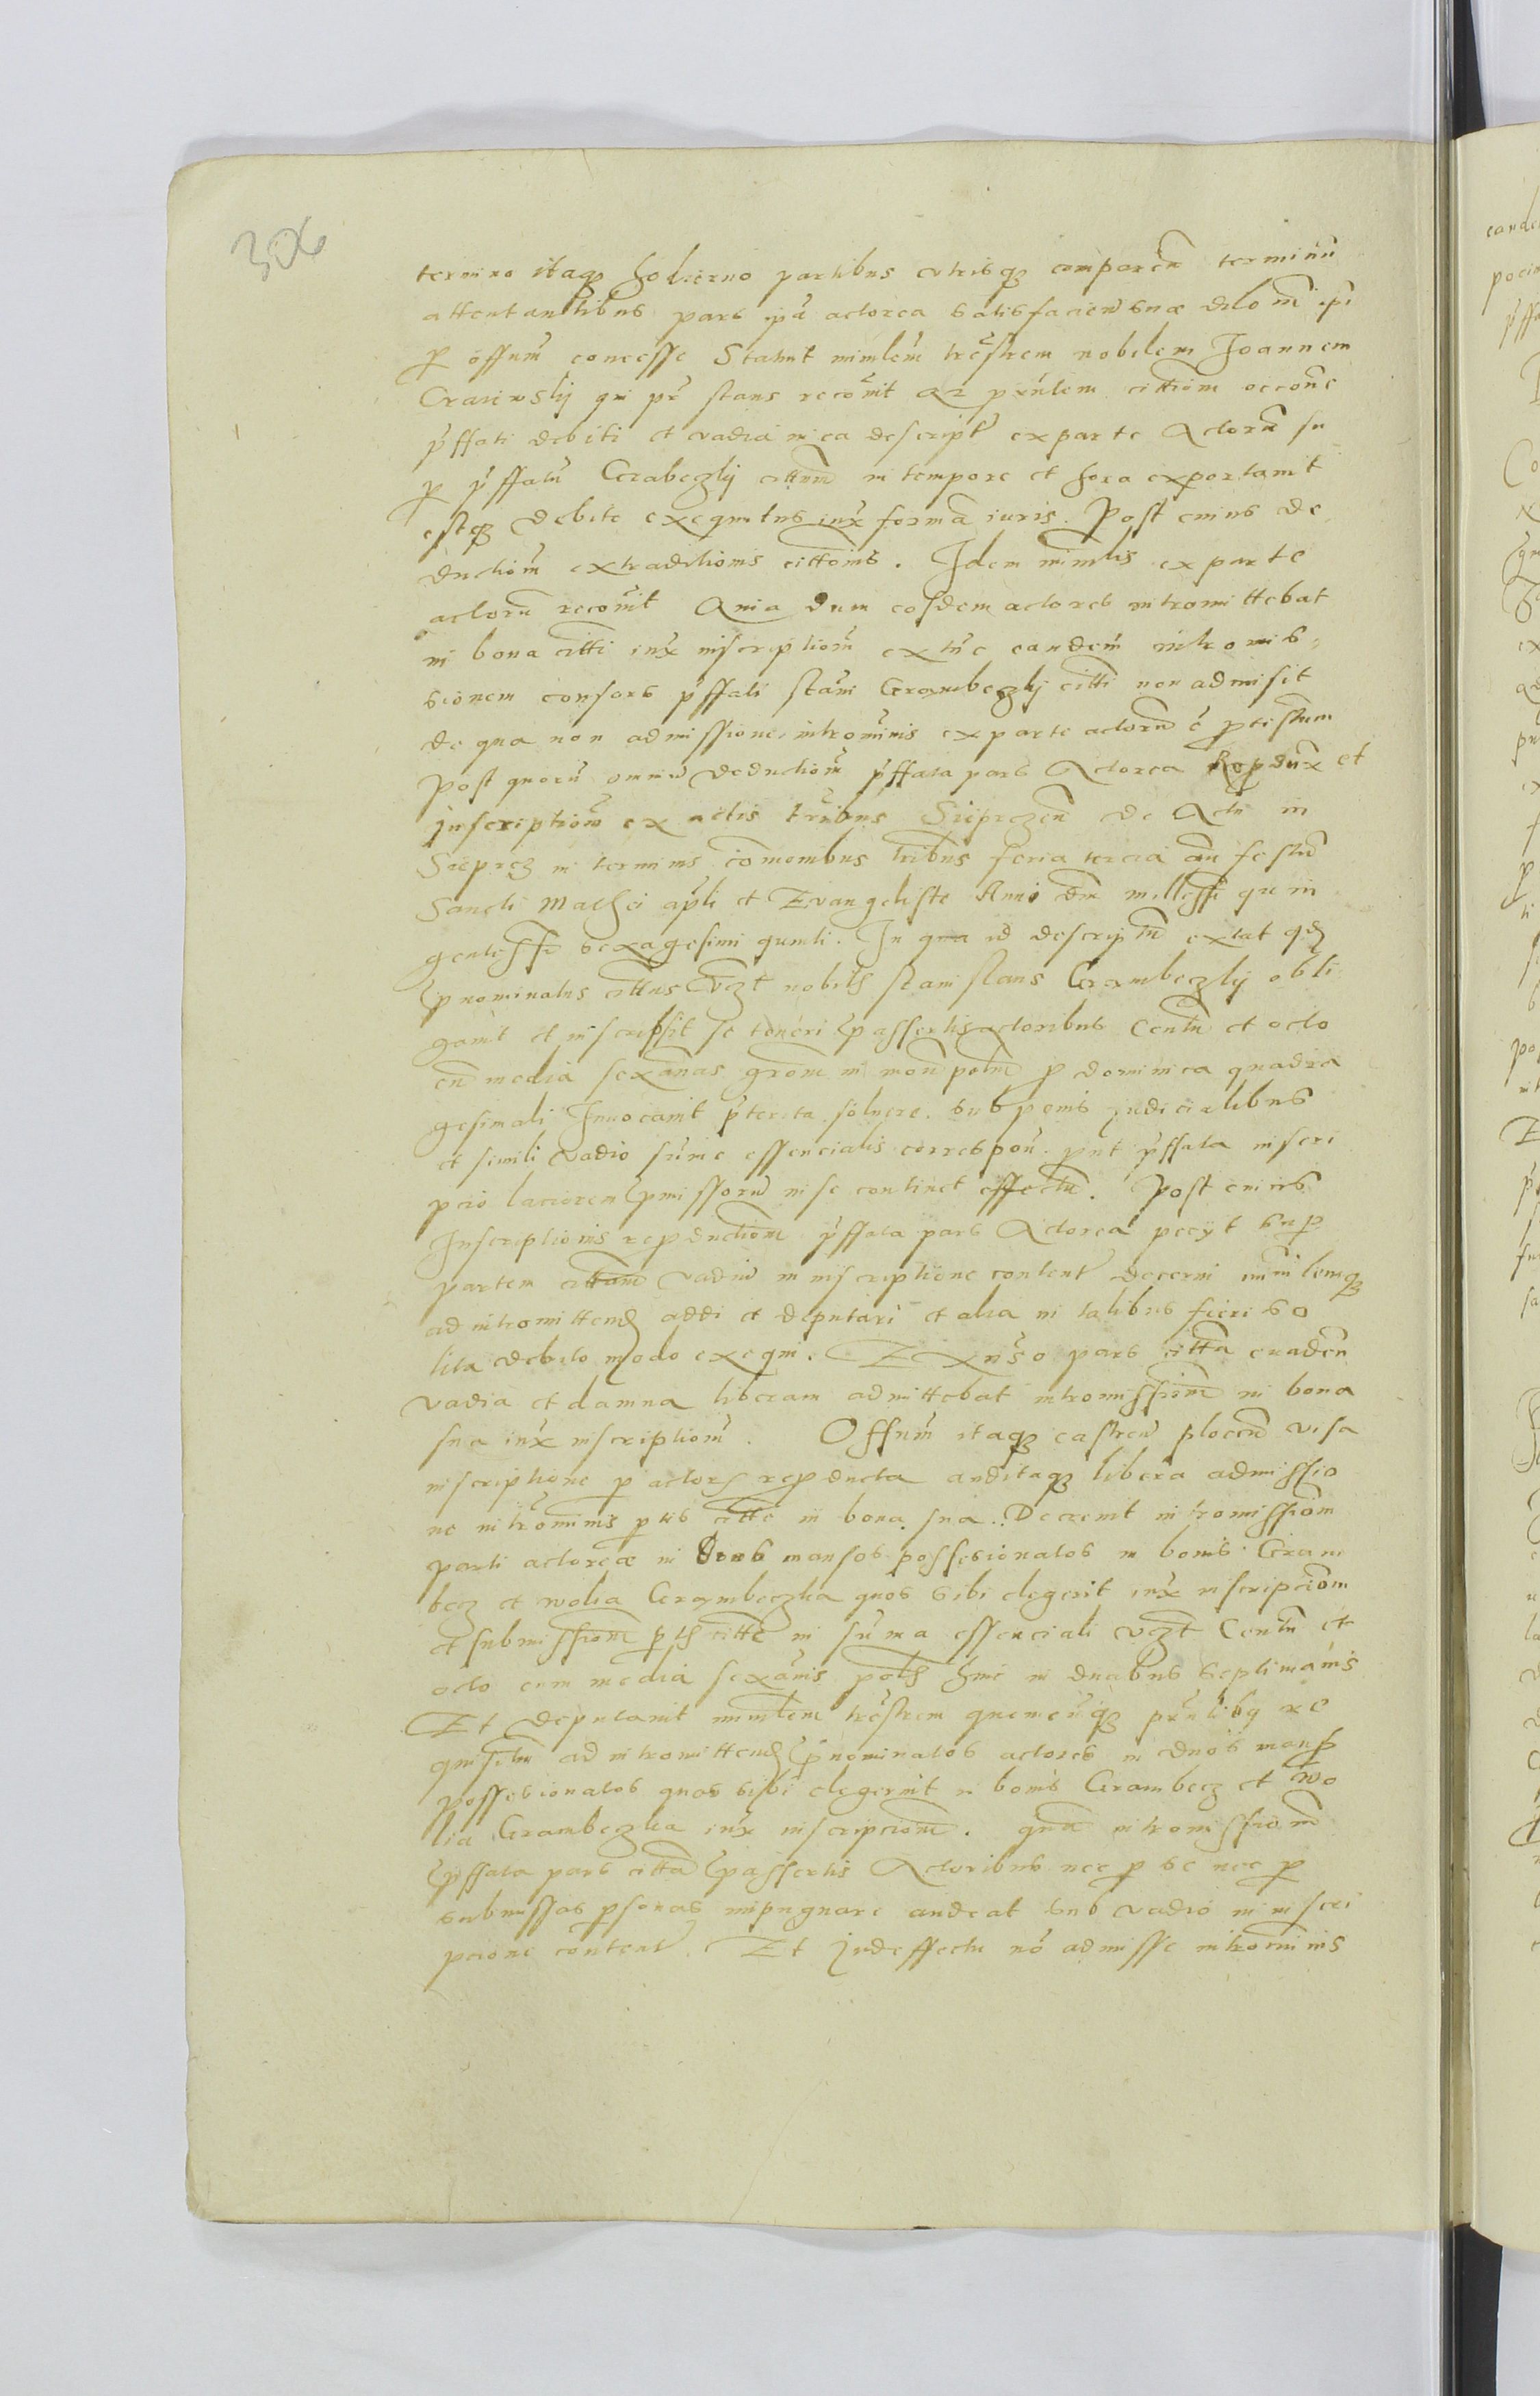 306
termino itaq hodierno partibus utrisq comparen terminū
attentantibus pars ipā actorea satisfacien suæ dilōni ipi
p offum concesse Statuit minlem trestrem nobilem Joannem
qui pr stans recovit qz pntem cittiom occone
pffati debiti et vadia in ea descript ex parte Actorū su
p pffatū Grabczky cittum in tempore et hora exportavit
estq debite exequutus iux formā iuris. Post cuius de
ductiom extraditionis cittonis. Idem minlis ex parte
actorū recovit Quia dum eosdem actores intromittebat
in bona citti iux inscriptiom extūc eandem intromis
sionem consors pffati stani Grambczky citti non admisit
de qua non admissione intromīnis ex parte actorū e ptestum
Post quorū omniū deductiom pffata pars Actorea Repdux et
Inscriptiom ex actis trribus Sieprczen de Actu in
Sieprcz in terminis comonibus tribus feria tercia an festū
Sancti Mathei apli et Evangeliste Anno dni millessi quin
gentessi sexagesimi quinti. In qua id descriptu extat qd
pnominatus cittus vzt nobilis stanislaus Grambczky obli
gavit et inscripsit se teneri passertis actoribus Centu et octo
cu media sexanas grom in mon polni p dominica quadra
gesimali Invocavit pterita solvere sub penis judicialibus
et simili vadio sume essencialis correspon. put pffata inscri
pcio laciorem pmissorū in se continet effectu. Post cuius
Inscriptionis repductiom pffata pars Actorea pecyt sup
partem cittam vadiū in inscriptione content decerni minlemq
ad intromittend addi et deputari et alia in talibus fieri so
lita debito modo exequi. Ex pars citta evaden
vadia et damna liberam admittebat intromissiom in bona
sua iux inscriptiom. Offum itaq castren plocen visa
inscriptione p actores repducta auditaq libera admissio
ne intromīnis ptis citte in bona sua. Decrevit intromissiom
parti actoreæ in duos mansos possesionatos in bonis Gram
bcz et wolia Grambczka quos sibi elegerit iux inscripciom
et submissiom ptis citte in sūma essenciali vzt Centu et
octo cum media sexanis polis hinc in duabus septimanis
Et deputavit minlem trestrem quemcuq pntiby re
quisitu ad intromittend pnominatos actores in duos mans
possesionatos quos sibi elegerint in bonis Grambcz et Wo
lia Grambczka iux inscripciom. quā intromissiom
pffata pars citta passertis Actoribus nec p se nec p
submissas psonas impugnare audeat sub vadio in inscri
pcione content. Et Inde effectu nō admisse intromīnis